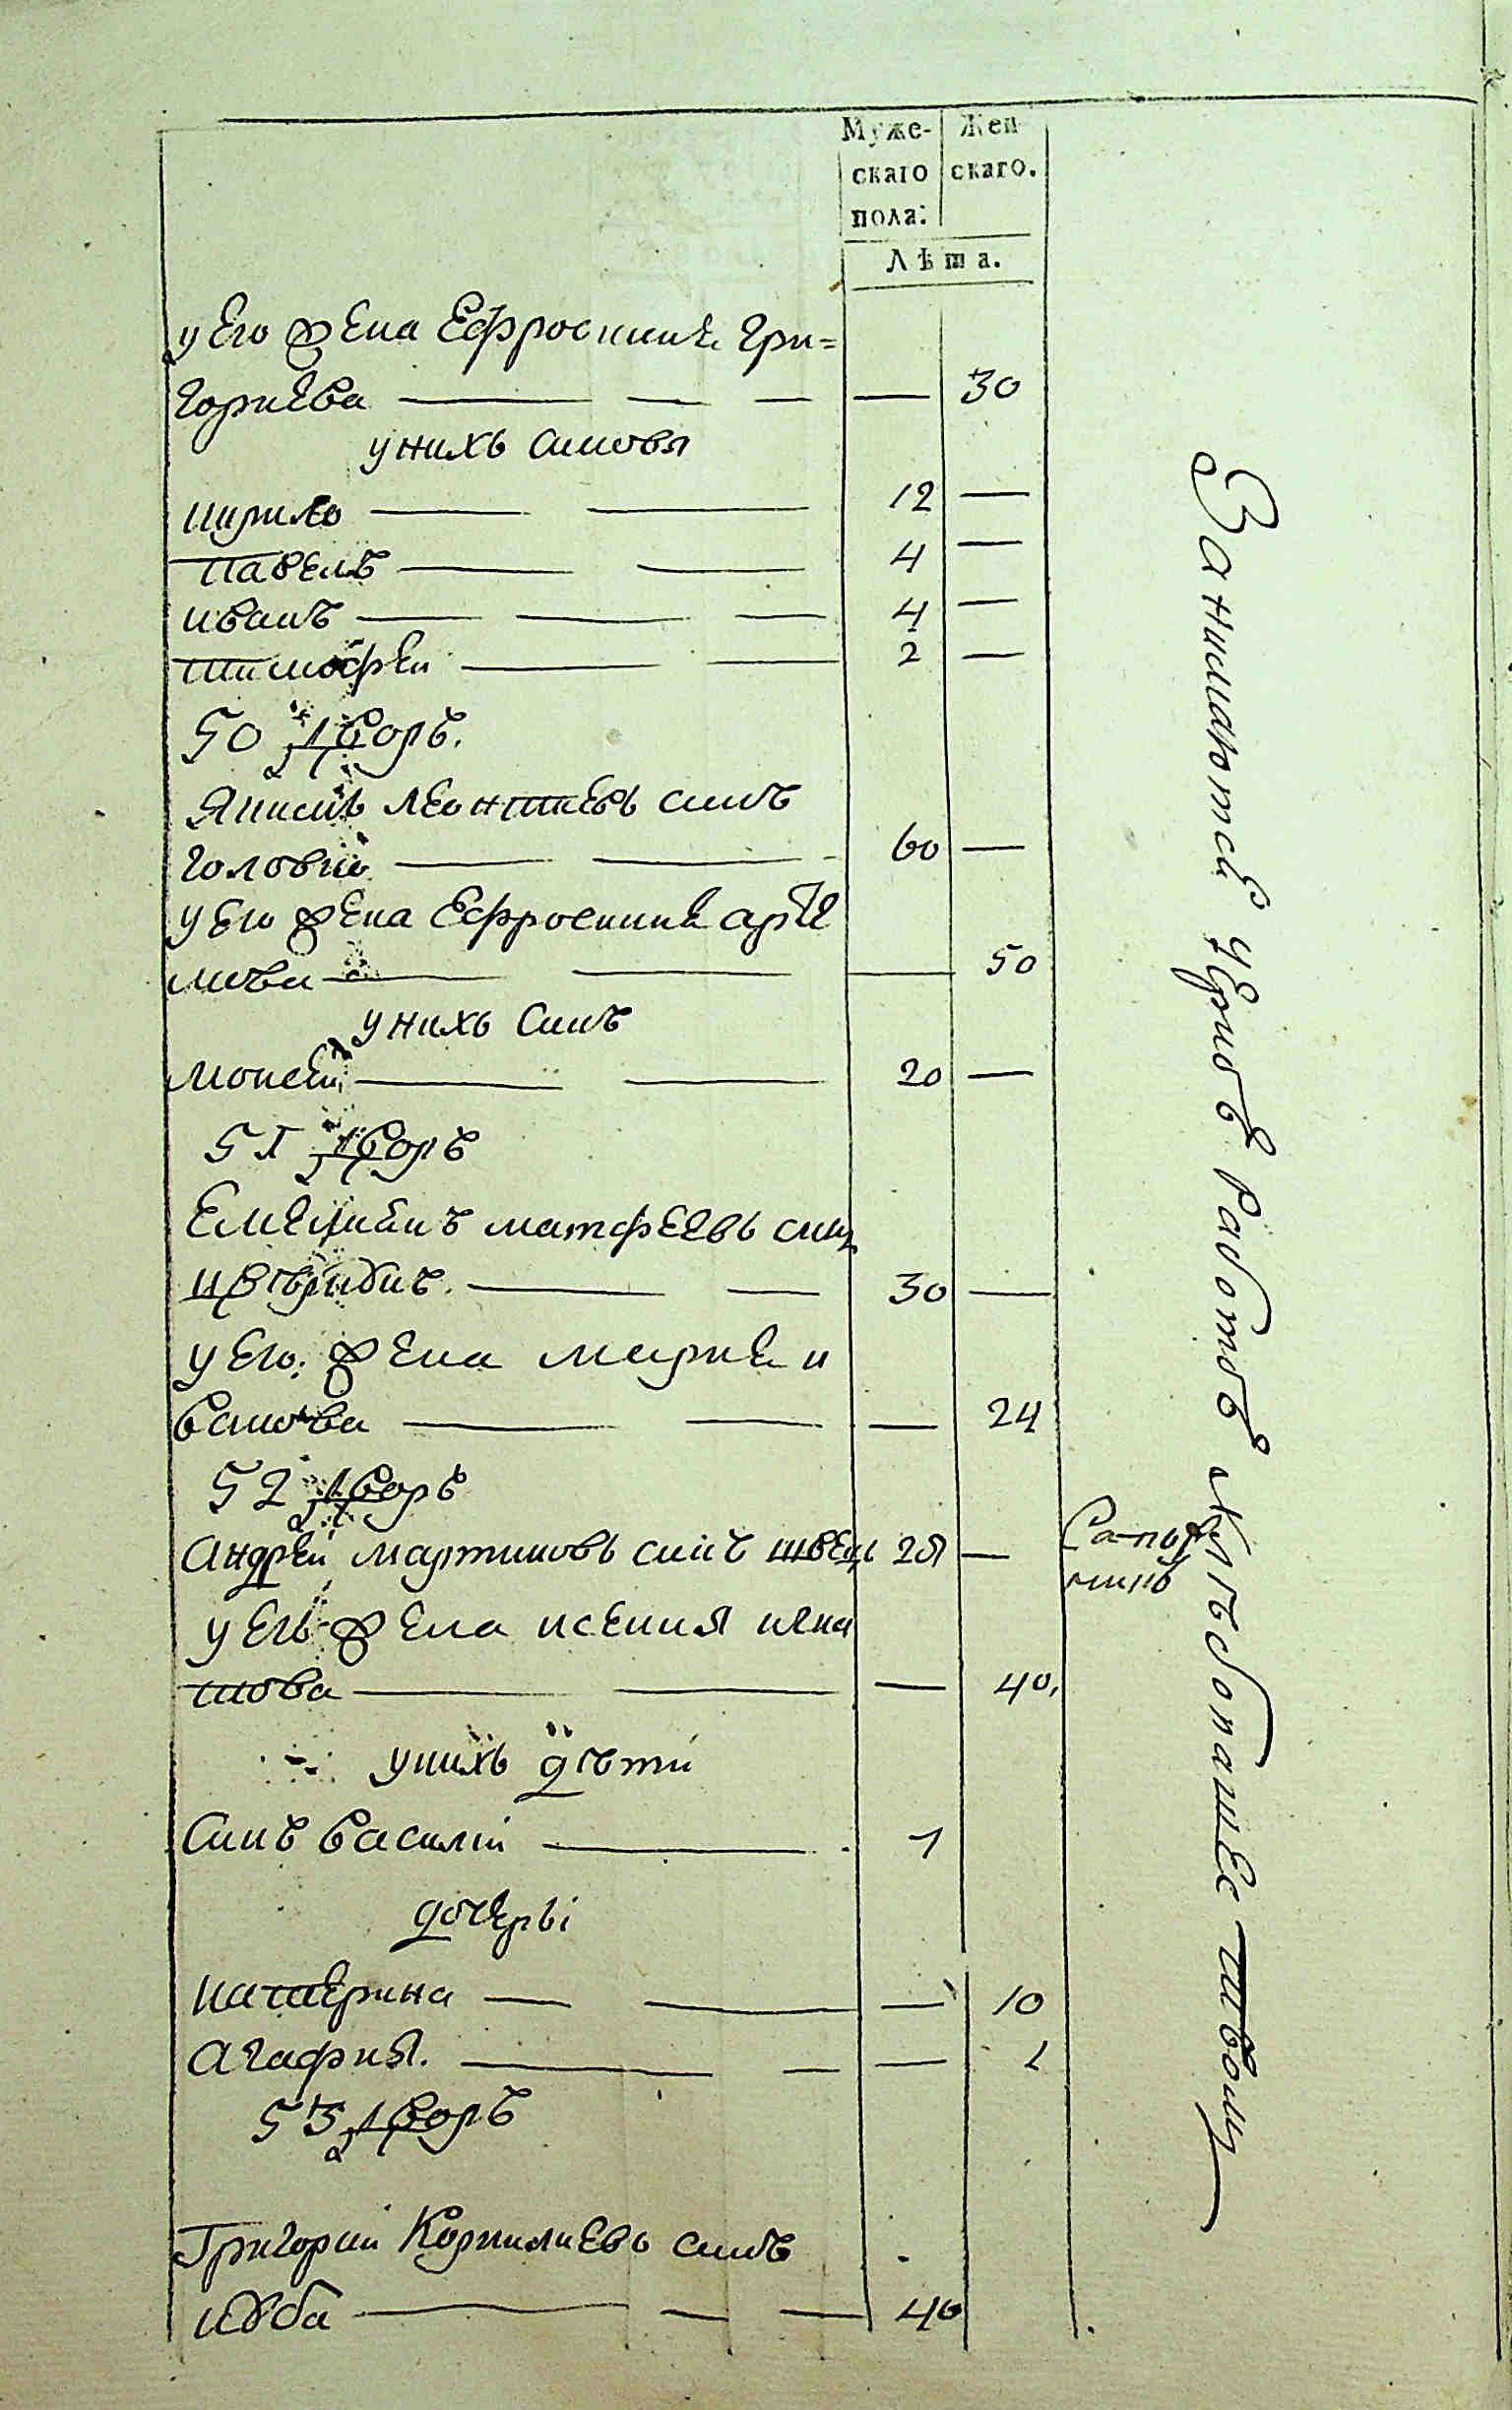 Муже- Жен
скаго скаго.
пола:
Лѣта.
у Его жена Ефросиния Гри=
гориева — — 30
у нихъ синовя
кирило 12 —
Павелъ 4 —
иванъ 4 —
тимофеи 2 —
50 дворъ.
Якимъ Леонтиевъ синъ
головко 60 —
у Его жена Ефросиния арте
мова — 50
у нихъ синъ
моисеи 20 —
51 дворъ
Емелиянъ матфеевъ синъ
30 —
у Его: жена мария и
ванова — 24
52 дворъ
Андреи мартиновъ синъ швець 28 —
у Его жена ксения игна
това — 40.
у нихъ дѣти
Синъ василии 1
дочери
катерина — 10
Агафия. — 1
53 дворъ
Григории Корнилиевъ синъ
40
Занимаются черною работою хлѣбопашеством